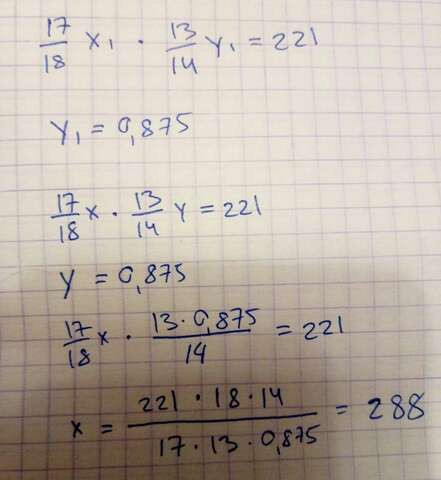 17/18 x₁ · 13/14 y₁ = 221
y₁ = 0,875
17/18 x · 13/14 y = 221
y = 0,875
17/18 x · 13·0,875/14 = 221
x = 221·18·14/17·13·0,875 = 288